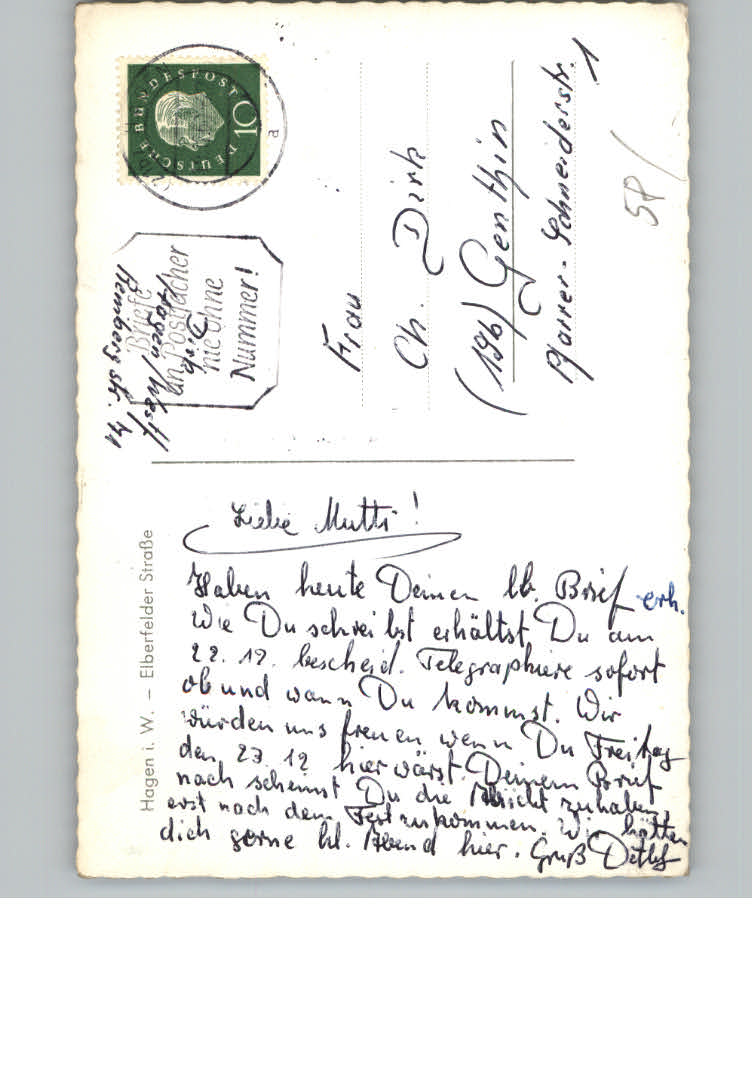 DEUTSCHE BUNDESPOST
10
a
Briefe
an Postfächer
nie ohne
Nummer!
Dirk
Hagen/Westf
Rembergstr. 71
Frau
Ch. Dirk
(19b) Genthin
Pfarrer-Schneiderstr. 1
58/
Hagen i. W. – Elberfelder Straße
Liebe Mutti!
Haben heute Deinen lb. Brief erh.
Wie Du schreibst erhältst Du am
22. 12. bescheid. Telegraphiere sofort
ob und wann Du kommst. Wir
würden uns freuen wenn Du Freitag
den 23.12 hier wärst. Deinem Brief
nach scheinst Du die Absicht zu haben
erst nach dem Fest zukommen. Wir hätten
dich gerne hl. Abend hier. Gruß Detlef